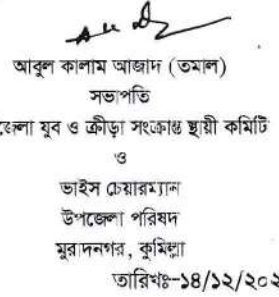 আবুল কালাম আজাদ (তমাল)
সভাপতি
যুব ও ক্রীড়া সংক্রান্ত স্থায়ী কমিটি
ও
ভাইস চেয়ারম্যান
উপজেলা পরিষদ
মুরাদনগর, কুমিল্লা
তারিখঃ-১৪/১২/২০২